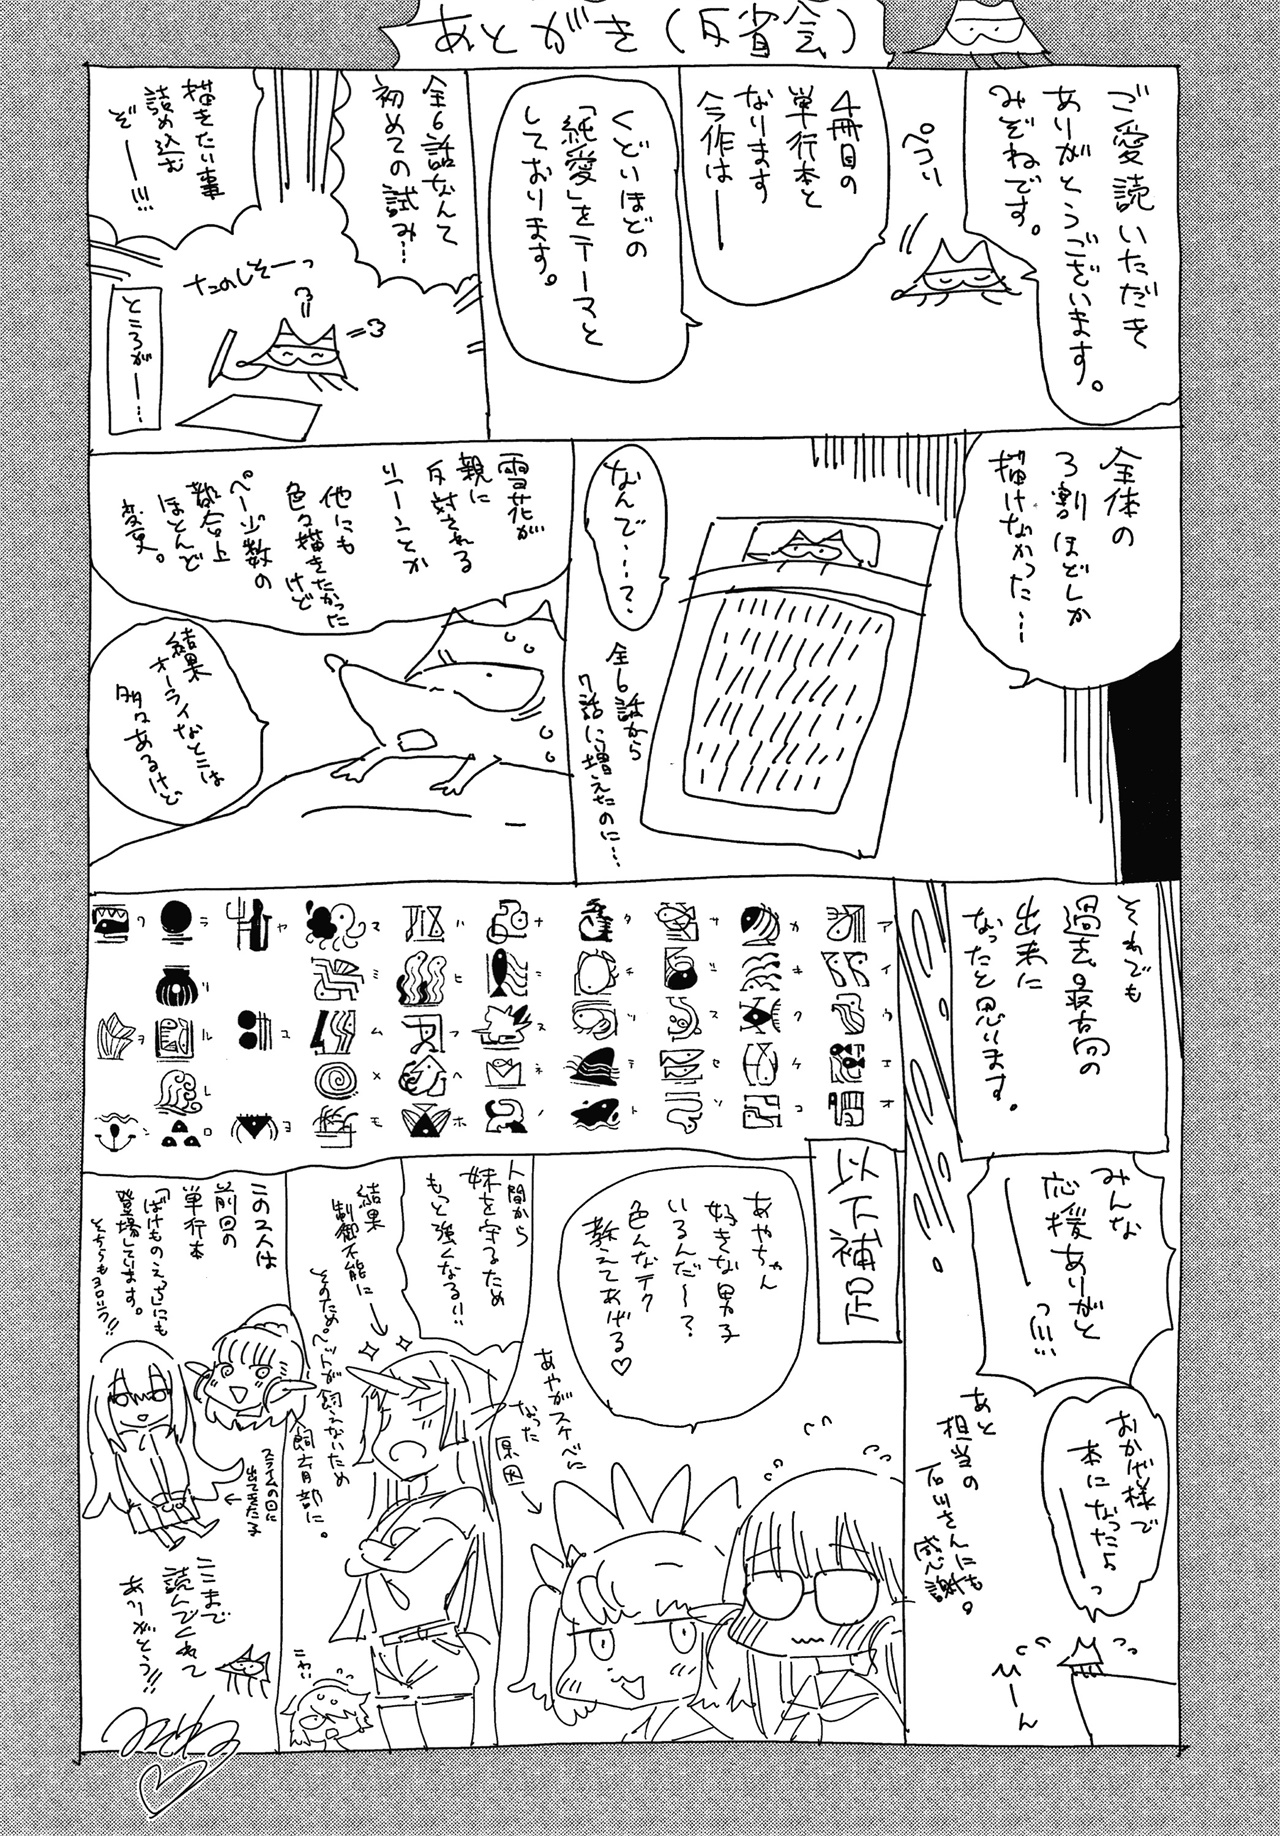 あとがき(反省会)
ご愛読いただき
ありがとうございます。
みぞねです。
ペコリ
4冊目の
単行本と
なります
今作は――
くどいほどの
「純愛」をテーマと
しております。
全6話なんて
初めての試み…
描きたい事
詰め込む
ぞ――!!!
たのしそーっ
ところがー…
全体の
3割ほどしか
描けなかった…
なんで……て?
全6話から
7話に増えたのに…
雪花が
親に
反対される
シーンとか
他にも
色々描きたかった
けど
ページ数の
都合上
ほとんど
変更。
結果
オーライなとこは
多々あるけど
それでも
過去最高の
出来に
なったと思います。
みんな
応援ありがと
――っ!!!
おかげ様で
本になったよ
――っ
あと
担当の
石川さんにも
感謝。
ひーん
ア
イ
ウ
エ
オ
カ
キ
ク
ケ
コ
サ
シ
ス
セ
ソ
タ
チ
ツ
テ
ト
ナ
ニ
ヌ
ネ
ノ
ハ
ヒ
フ
ヘ
ホ
マ
ミ
ム
メ
モ
ヤ
ユ
ヨ
ラ
リ
ル
レ
ロ
ワ
ヲ
ン
以下補足
あやちゃん
好きな男子
いるんだ〜?
色んなテク
教えてあげる♡
あやがスケベに
なった
原因→
人間から
妹を守るため
もっと強くなる!!
結果
制御不能に→
そのためペットが飼えないため
飼育部に。
この2人は
前回の
単行本
「ばけものえっち」にも
登場しています。
そちらもヨロシク!!
スライムの回に
出てきた子
ここまで
読んでくれて
ありがとう!!
みぞね♡